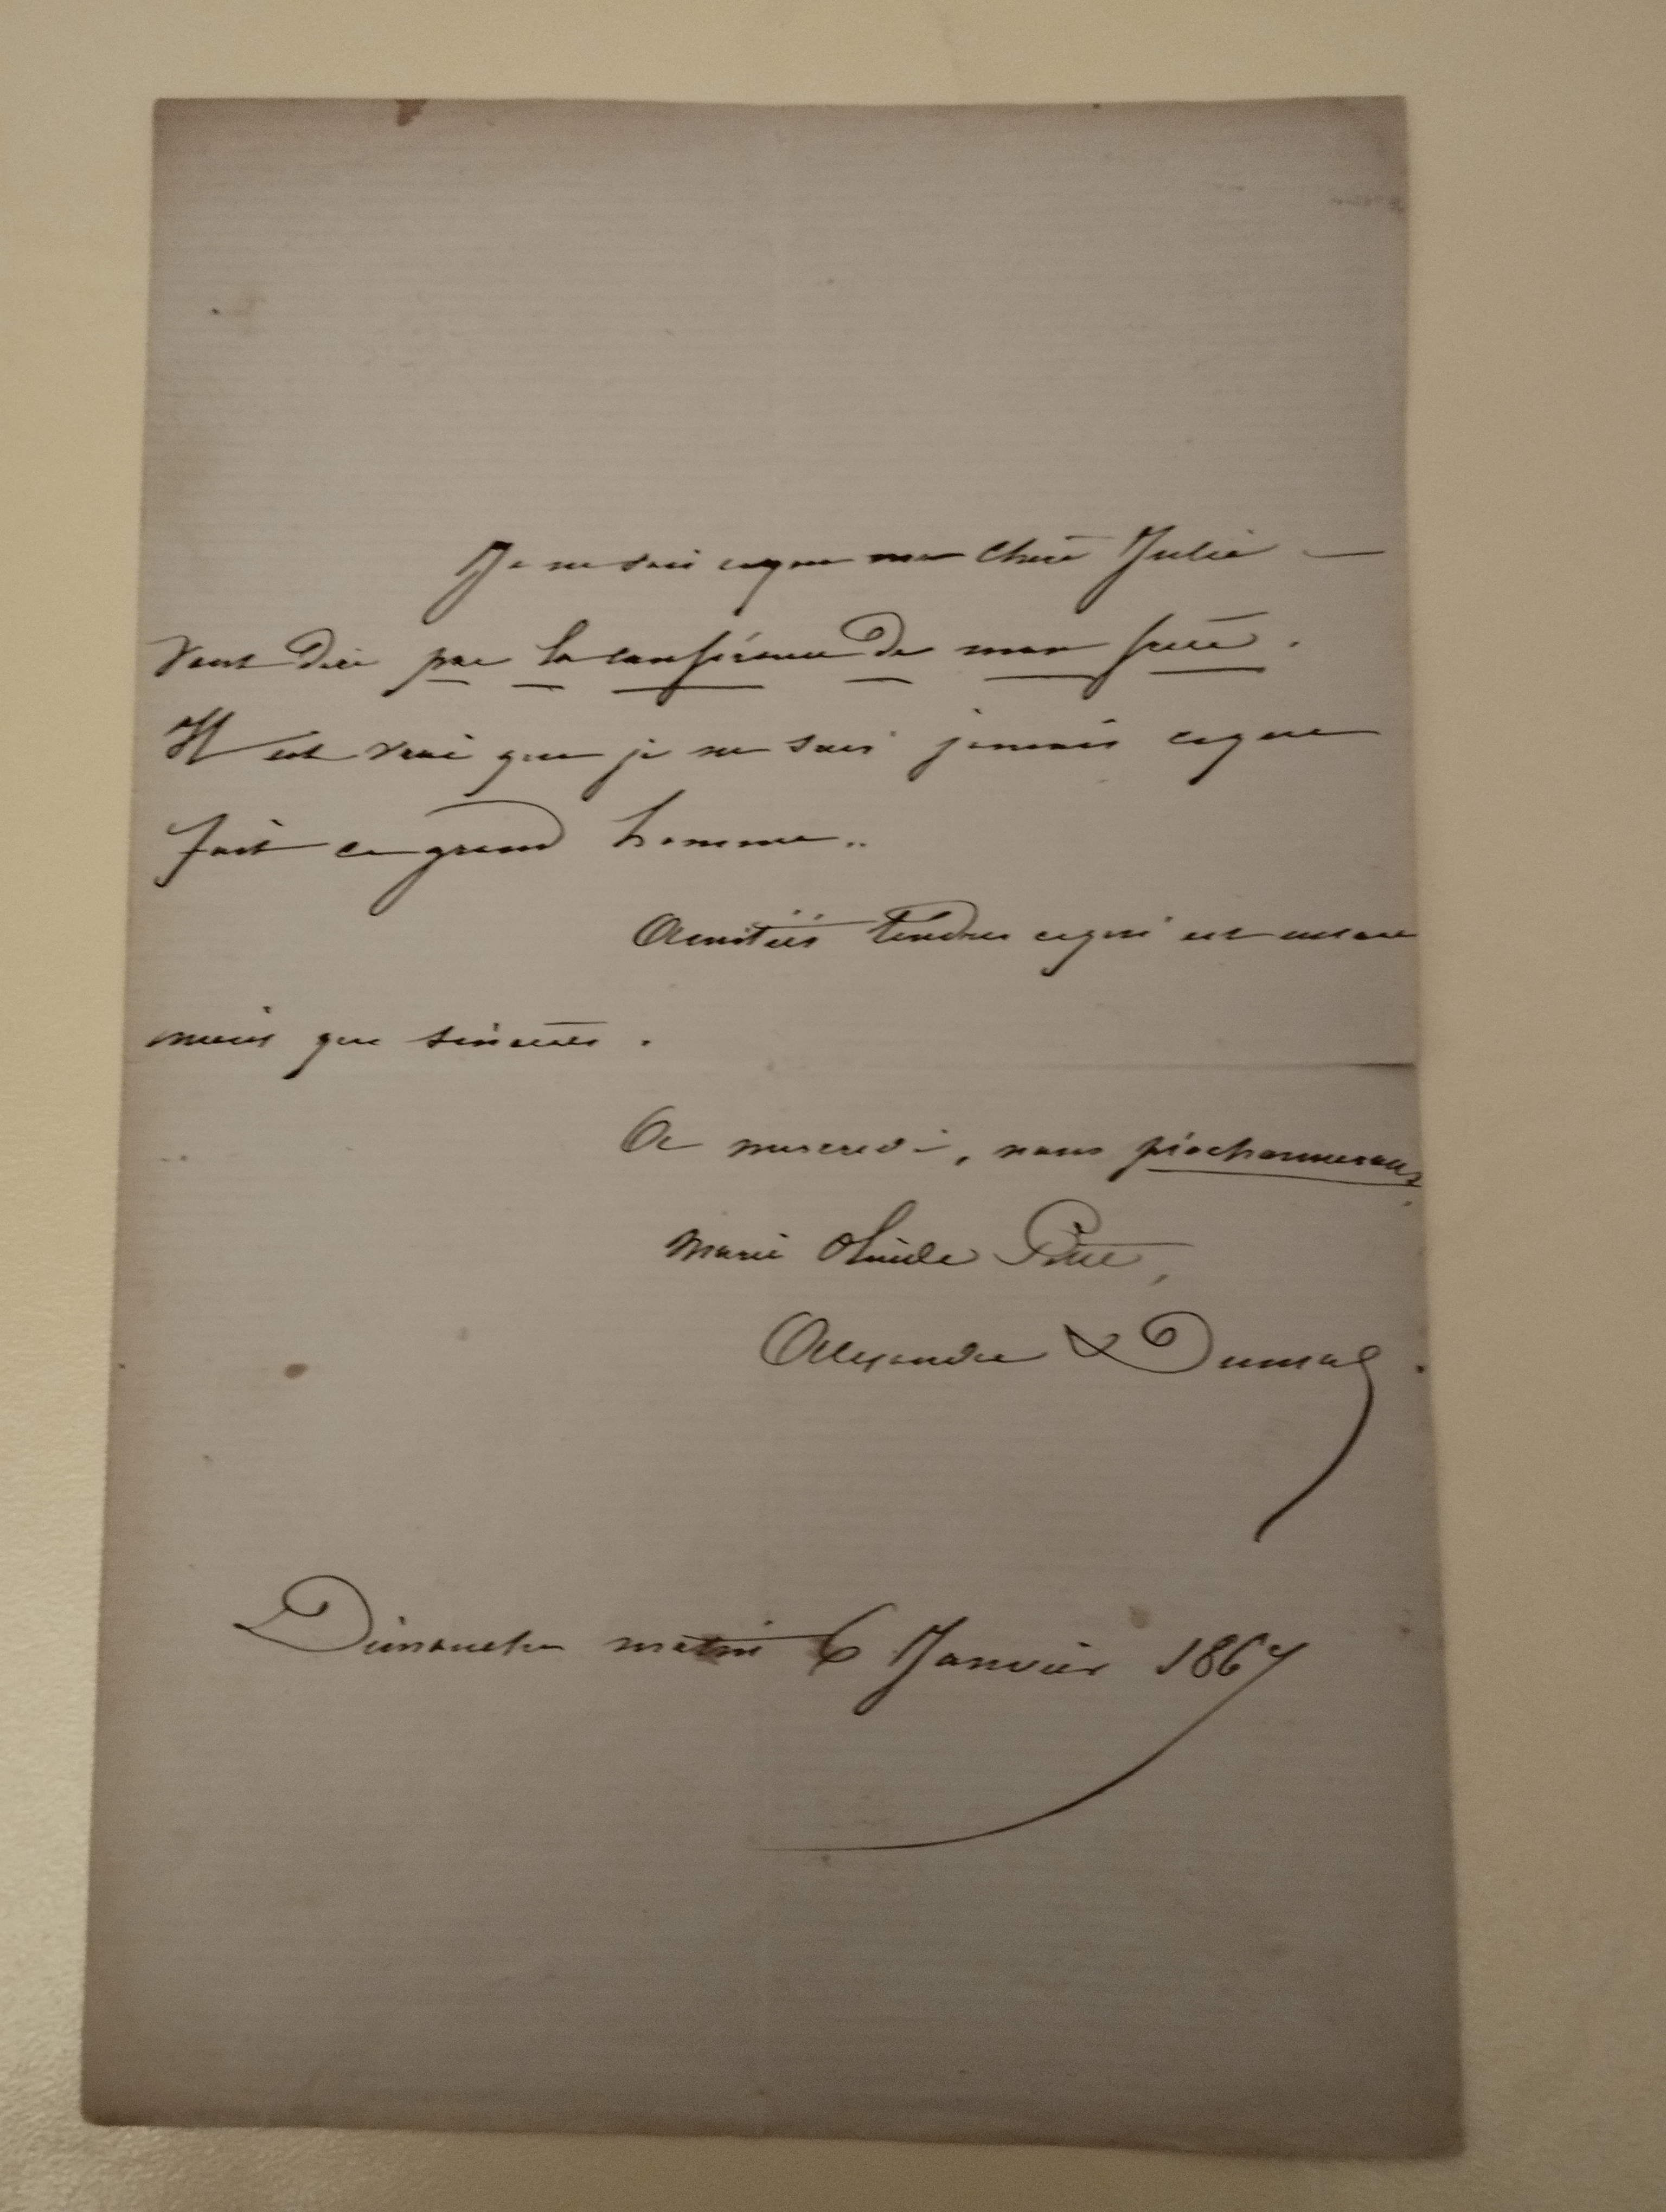 Je ne sais ce que ma chère Julie —
veut dire par la conférence de mon frère.
Il est vrai que je ne sais jamais ce que
fait ce grand homme..
Amitiés tendres ce qui est encore
mieux que sincères.
A mercredi, nous
Marie
Alexandre Dumas
Dimanche matin 6 Janvier 1867